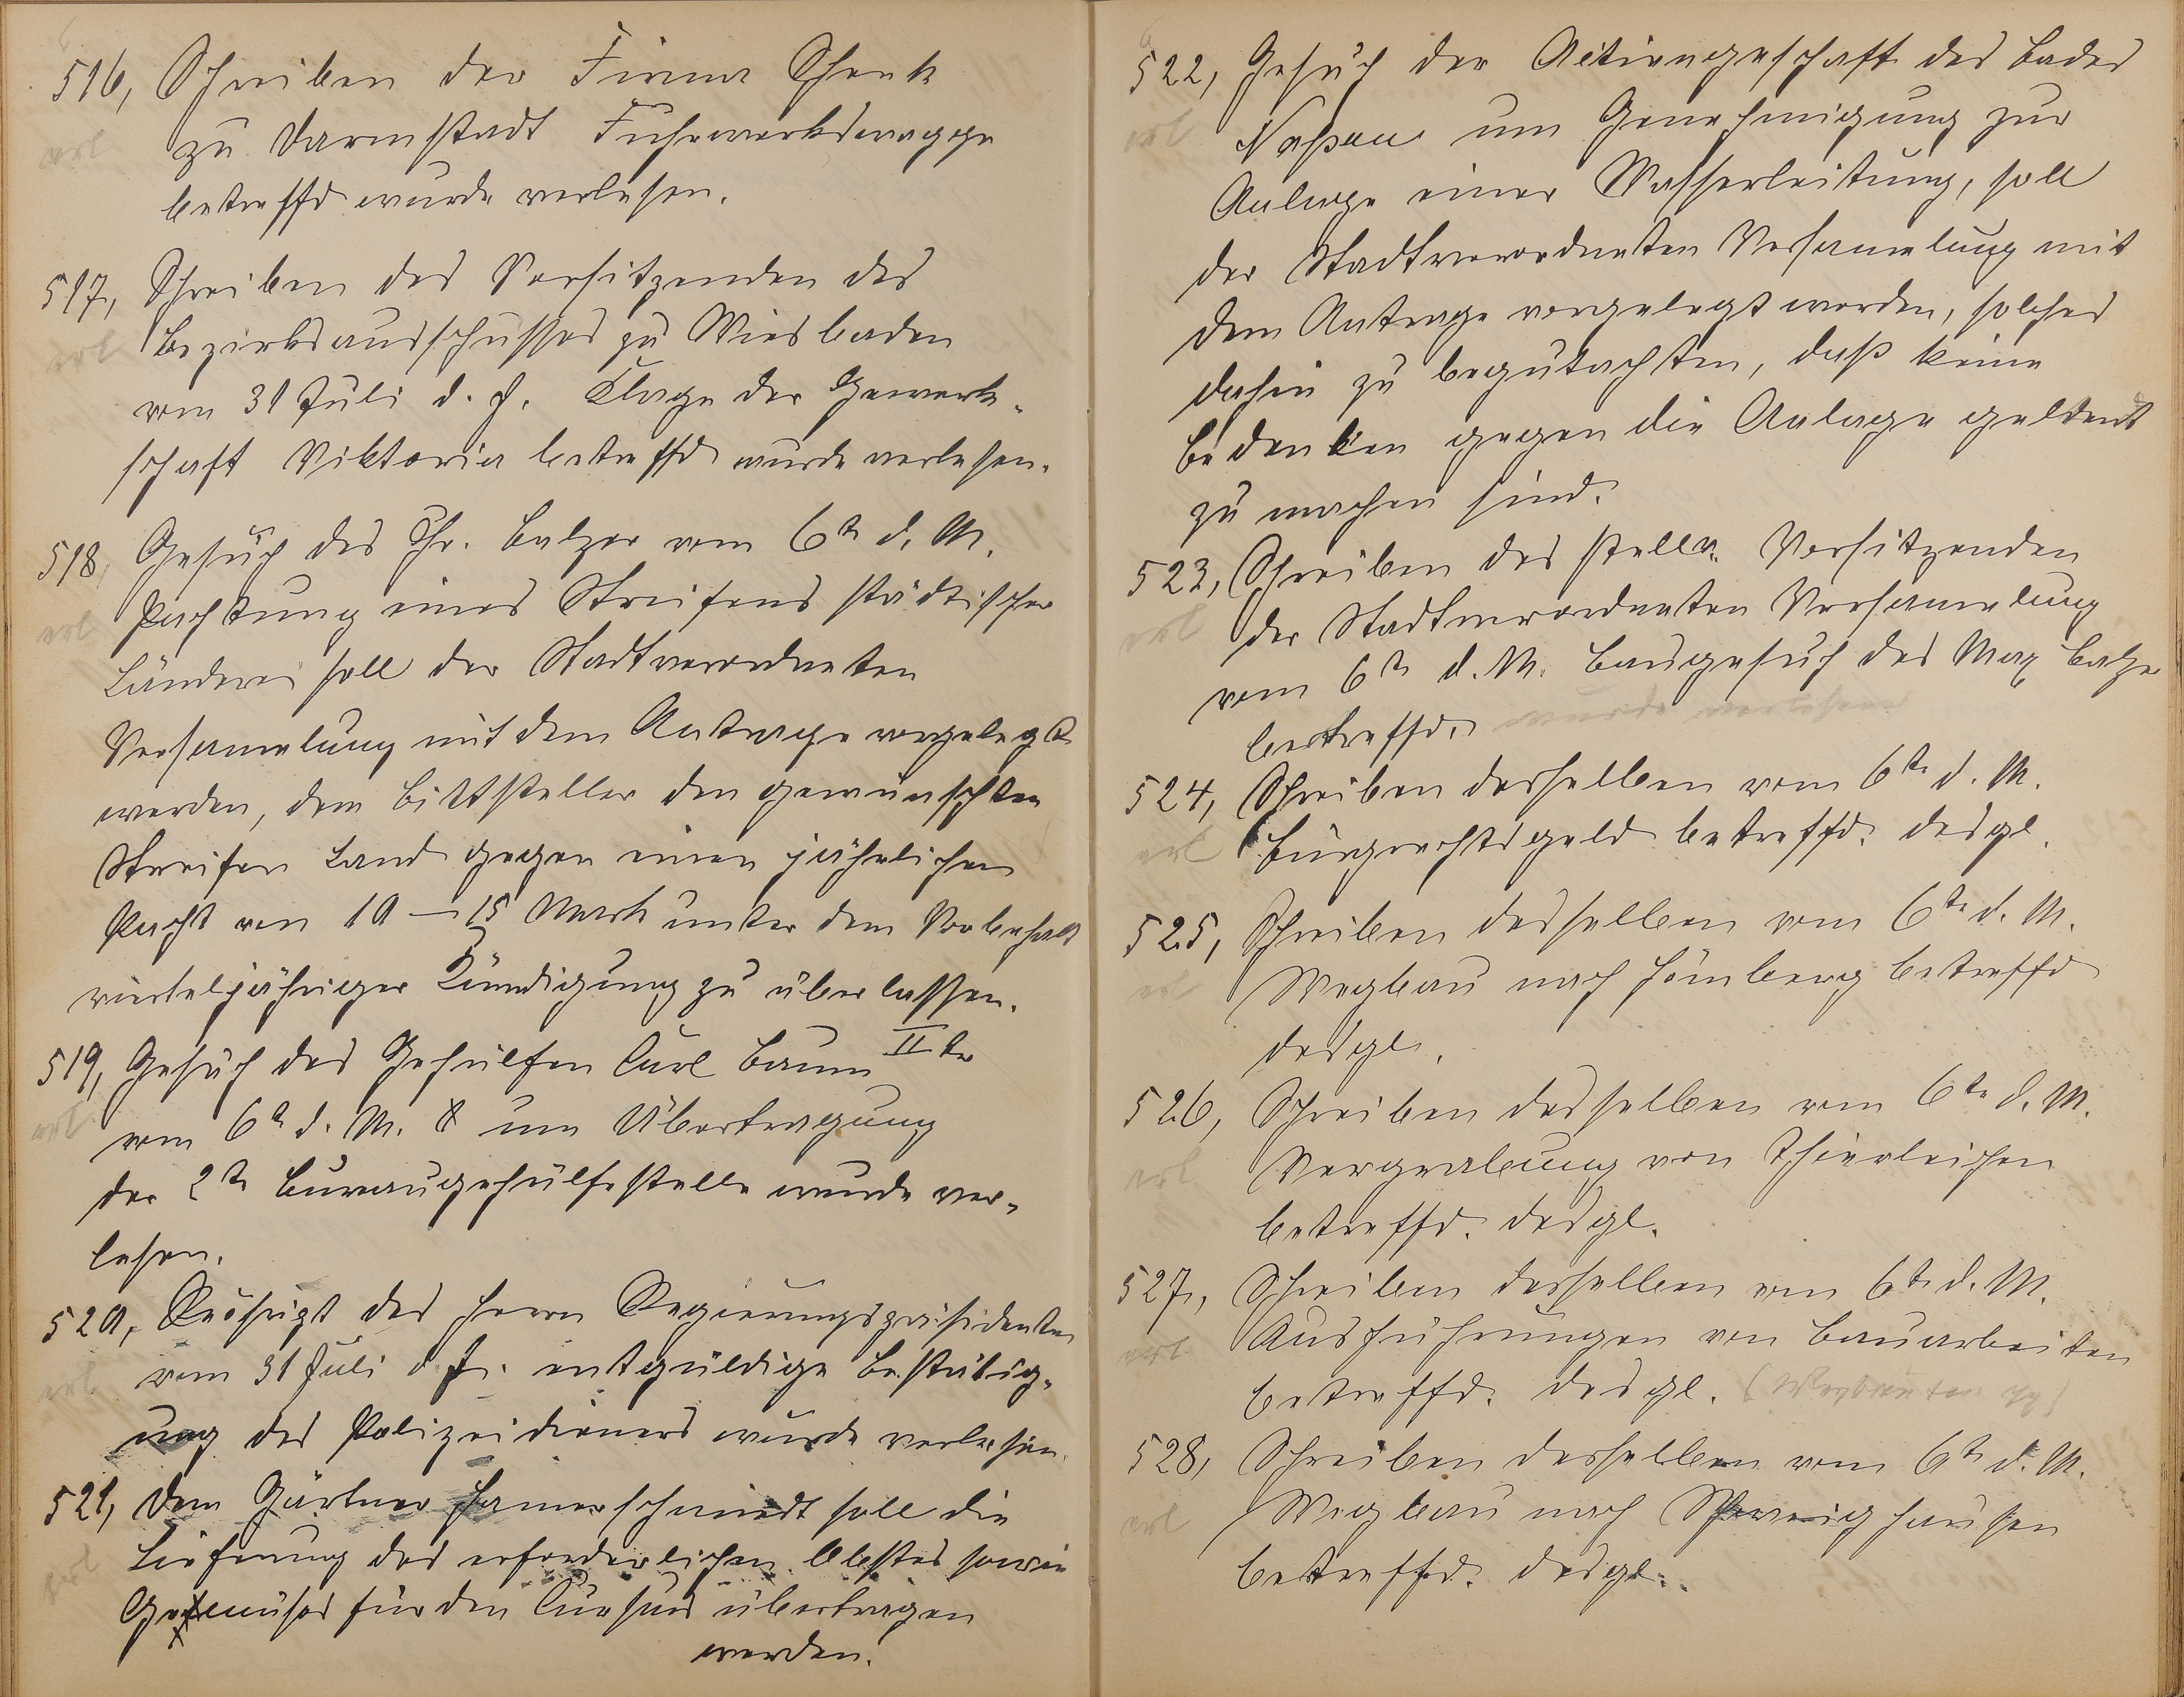 516, Schreiben der Firma Schenk
erl
zu Darmstadt Fuhrwerkswaage
betreffd wurde verlesen.
517, Schreiben des Vorsitzenden des
erl
Bezirksausschusses zu Wiesbaden
vom 31 Juli d. J. Klage der Gewerk-
schaft Viktoria betreffd wurde verlesen.
518, Gesuch des Chr. Balzer vom 6ts d. M.
erl
Pachtung eines Streifens städtischer
Länderei soll der Stadtverordneten
Versamelung mit dem Antrage vorgelegt
werden, dem Bittsteller den gewünschten
Streifen Land gegen einen jährlichen
Pacht von 10 – 15 Mark unter dem Vorbehalt
vierteljähriger Kündigung zu überlassen.
519, Gesuch des Gehülfen Carl Baum IIter
erl
vom 6ts d. M. um Übertragung
der 2te Bureaugehülfestelle wurde ver-
lesen.
520, des Herrn Regierungspräsidenten
erl
vom 31 Juli d. J. entgüldige Bestätig-
ung des Polizeidieners wurde verlesen.
521, Dem Gärtner Hamerschmidt soll die
erl
Lieferung des erforderlichen Obstes sowie
Gemüses für den Cursus übertragen
werden.
522, Gesuch der Actiengeschaft des Bades
erl
Nassau um Genehmigung zur
Anlage einer Wasserleitung, soll
der Stadtverordneten Versamelung mit
dem Antrage vorgelegt werden, solches
dahin zu begutachten, daß keine
Bedenken gegen die Anlage geldent
zu machen sind.
523, Schreiben des stellv. Vorsitzenden
erl
der Stadtverordneten Versamelung
vom 6ts d. M. Baugesuch des Max Balzer
betreffd. wurde verlesen
524, Schreiben desselben vom 6ts d. M.
erl
Bürgrechtsgeld betreffd. desgl.
525, Schreiben desselben vom 6ts d. M.
erl
Wegbau nach Hömberg betreffd
desgl.
526, Schreiben desselben vom 6ts d. M.
erl
Vergrabung von Thierleichen
betreffd. desgl.
527, Schreiben desselben vom 6ts d. M.
erl
Ausführungen von Bauarbeiten
betreffd. desgl.
528, Schreiben desselben vom 6ts d. M.
erl
Wegbau nach Schweighausen
betreffd. desgl.